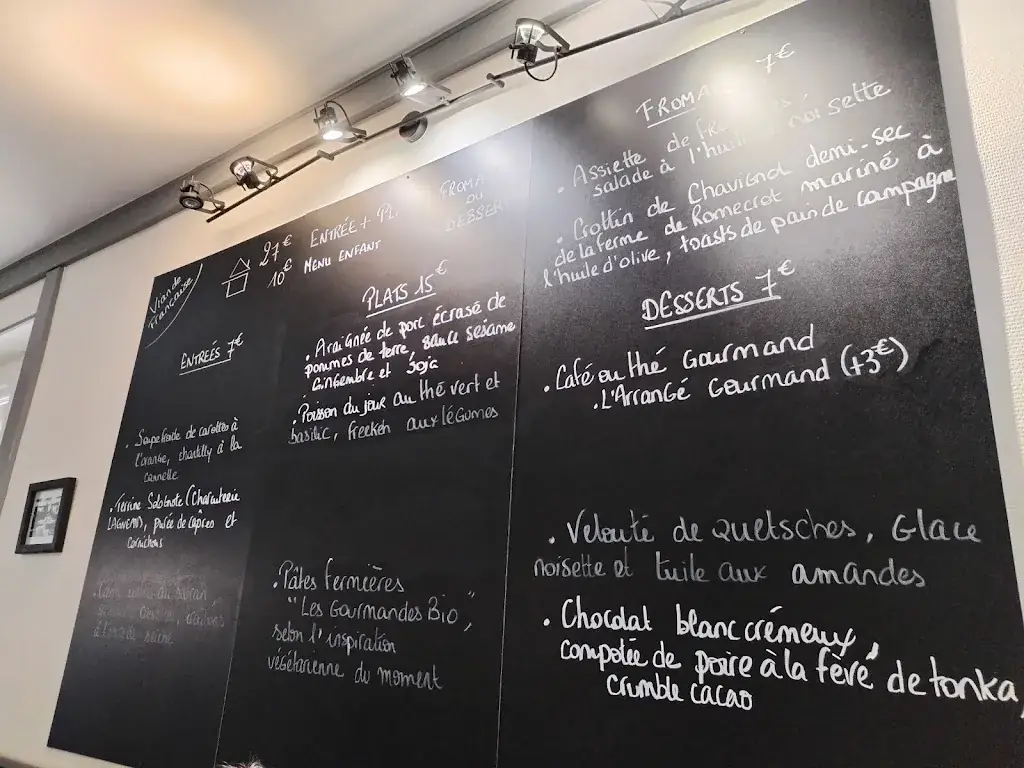 Viande
Française
27€
10€
ENTRÉE + PL.
MENU ENFANT
FROMA
OU
DESSER
ENTRÉES 7€
. Soupe froide de carottes à
l'orange, chantilly à la
cannelle
. Terrine Solognote (Charcuterie
LAGNEAU), purée de câpres et
Cornichons
PLATS 15€
. Araignée de porc écrasé de
pommes de terre, sauce sésame
Gingembre et Soja
. Poisson du jour au thé vert et
basilic, Freekeh aux légumes
. Pâtes fermières
"Les Gourmandes Bio",
selon l'inspiration
végétarienne du moment
FROMA 7€
. Assiette de
salade à l'huile noisette
. Crottin de Chavignol demi-sec
de la ferme de Romecrot mariné à
l'huile d'olive, toasts de pain de campagne
DESSERTS 7€
. Café ou thé Gourmand
. L'Arrangé Gourmand (+3€)
. Velouté de quetsches, Glace
noisette et tuile aux amandes
. Chocolat blanc crémeux,
compotée de poire à la fève de tonka,
Crumble cacao